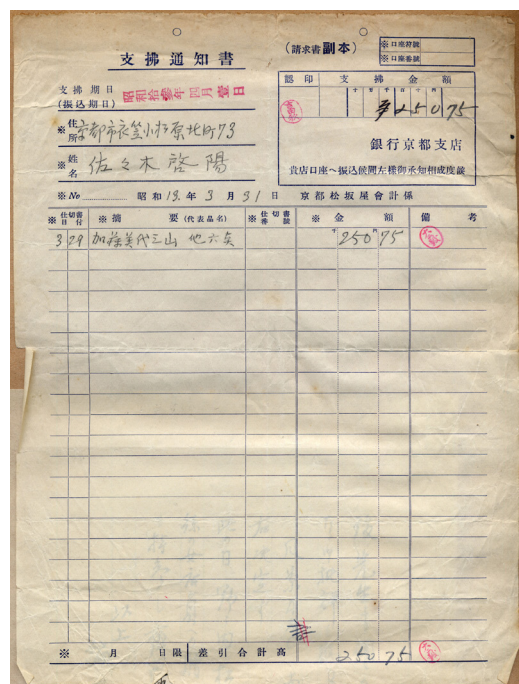 支拂通知書
(請求書副本)
※口座符號
※口座番號
支拂期日
(振込期日)
昭和拾參年四月壹日
認印 支拂金額
十万千百十円
25075
※住所 京都市衣笠小松原北町73
※姓名 佐々木啓陽
銀行京都支店
貴店口座へ振込候間左樣御承知相成度候
※No 昭和13.年3月31日 京都松坂屋會計係
※仕切書日付 ※摘要(代表品名) ※仕切書番號 ※金額 備考
3 29 加藤美代三山 他六点 250 75
※ 月 日限 差引合計高 250 75